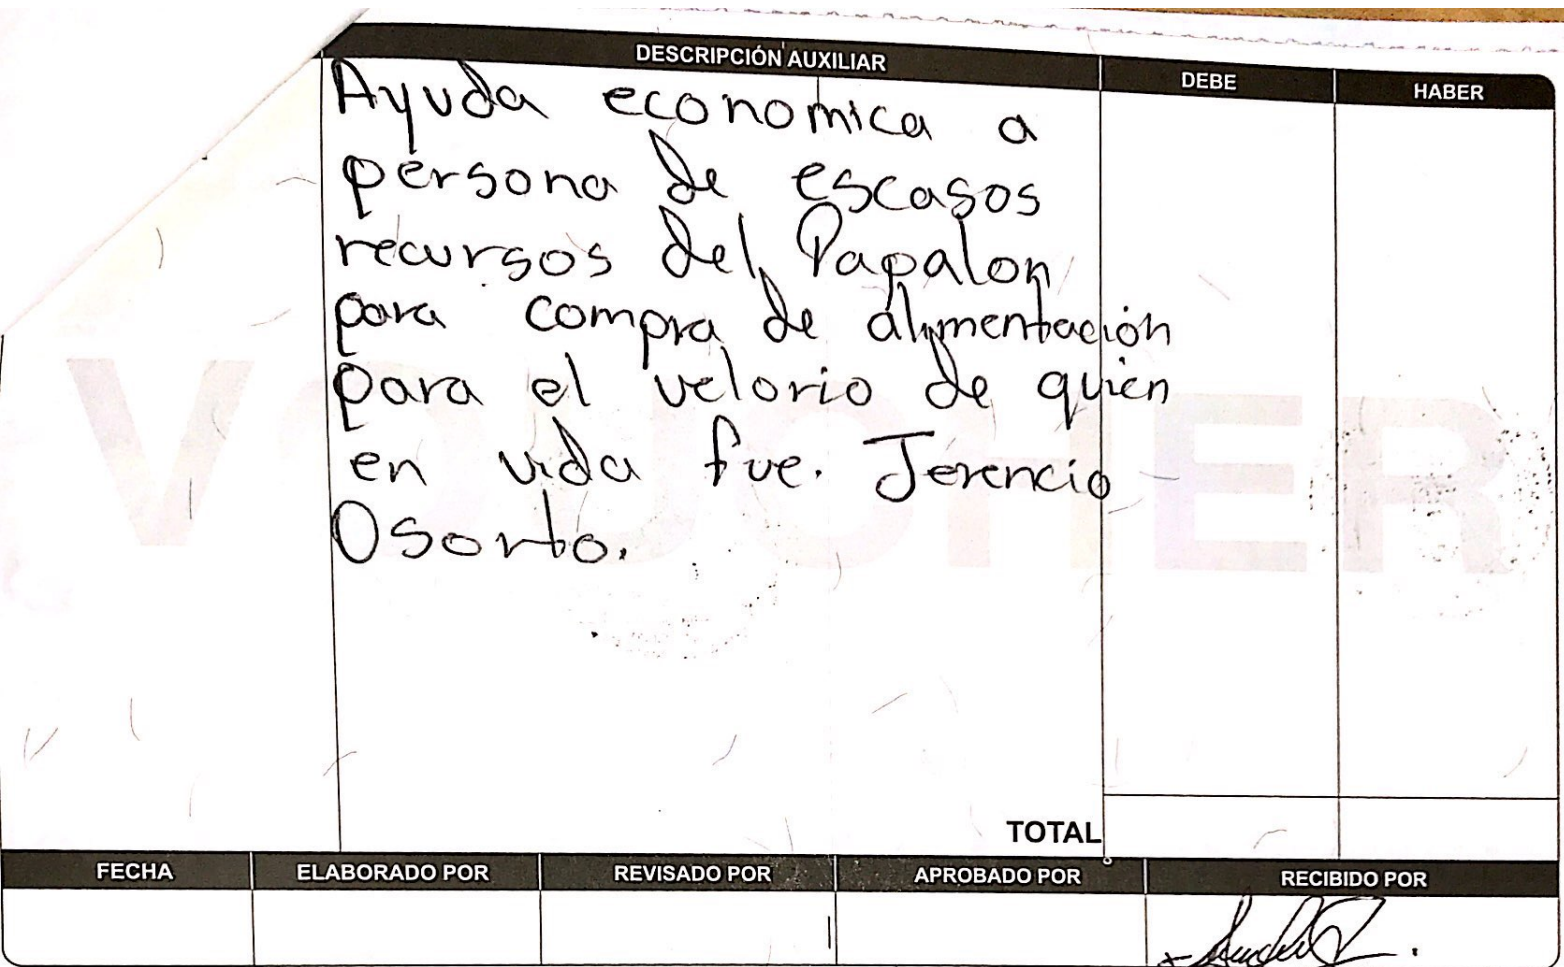 DESCRIPCIÓN AUXILIAR DEBE HABER
Ayuda economica a
persona de escasos
recursos del Papalon
para compra de alimentación
para el velorio de quien
en vida fue. Terencio
Osorto.
VOUCHER
TOTAL
FECHA ELABORADO POR REVISADO POR APROBADO POR RECIBIDO POR